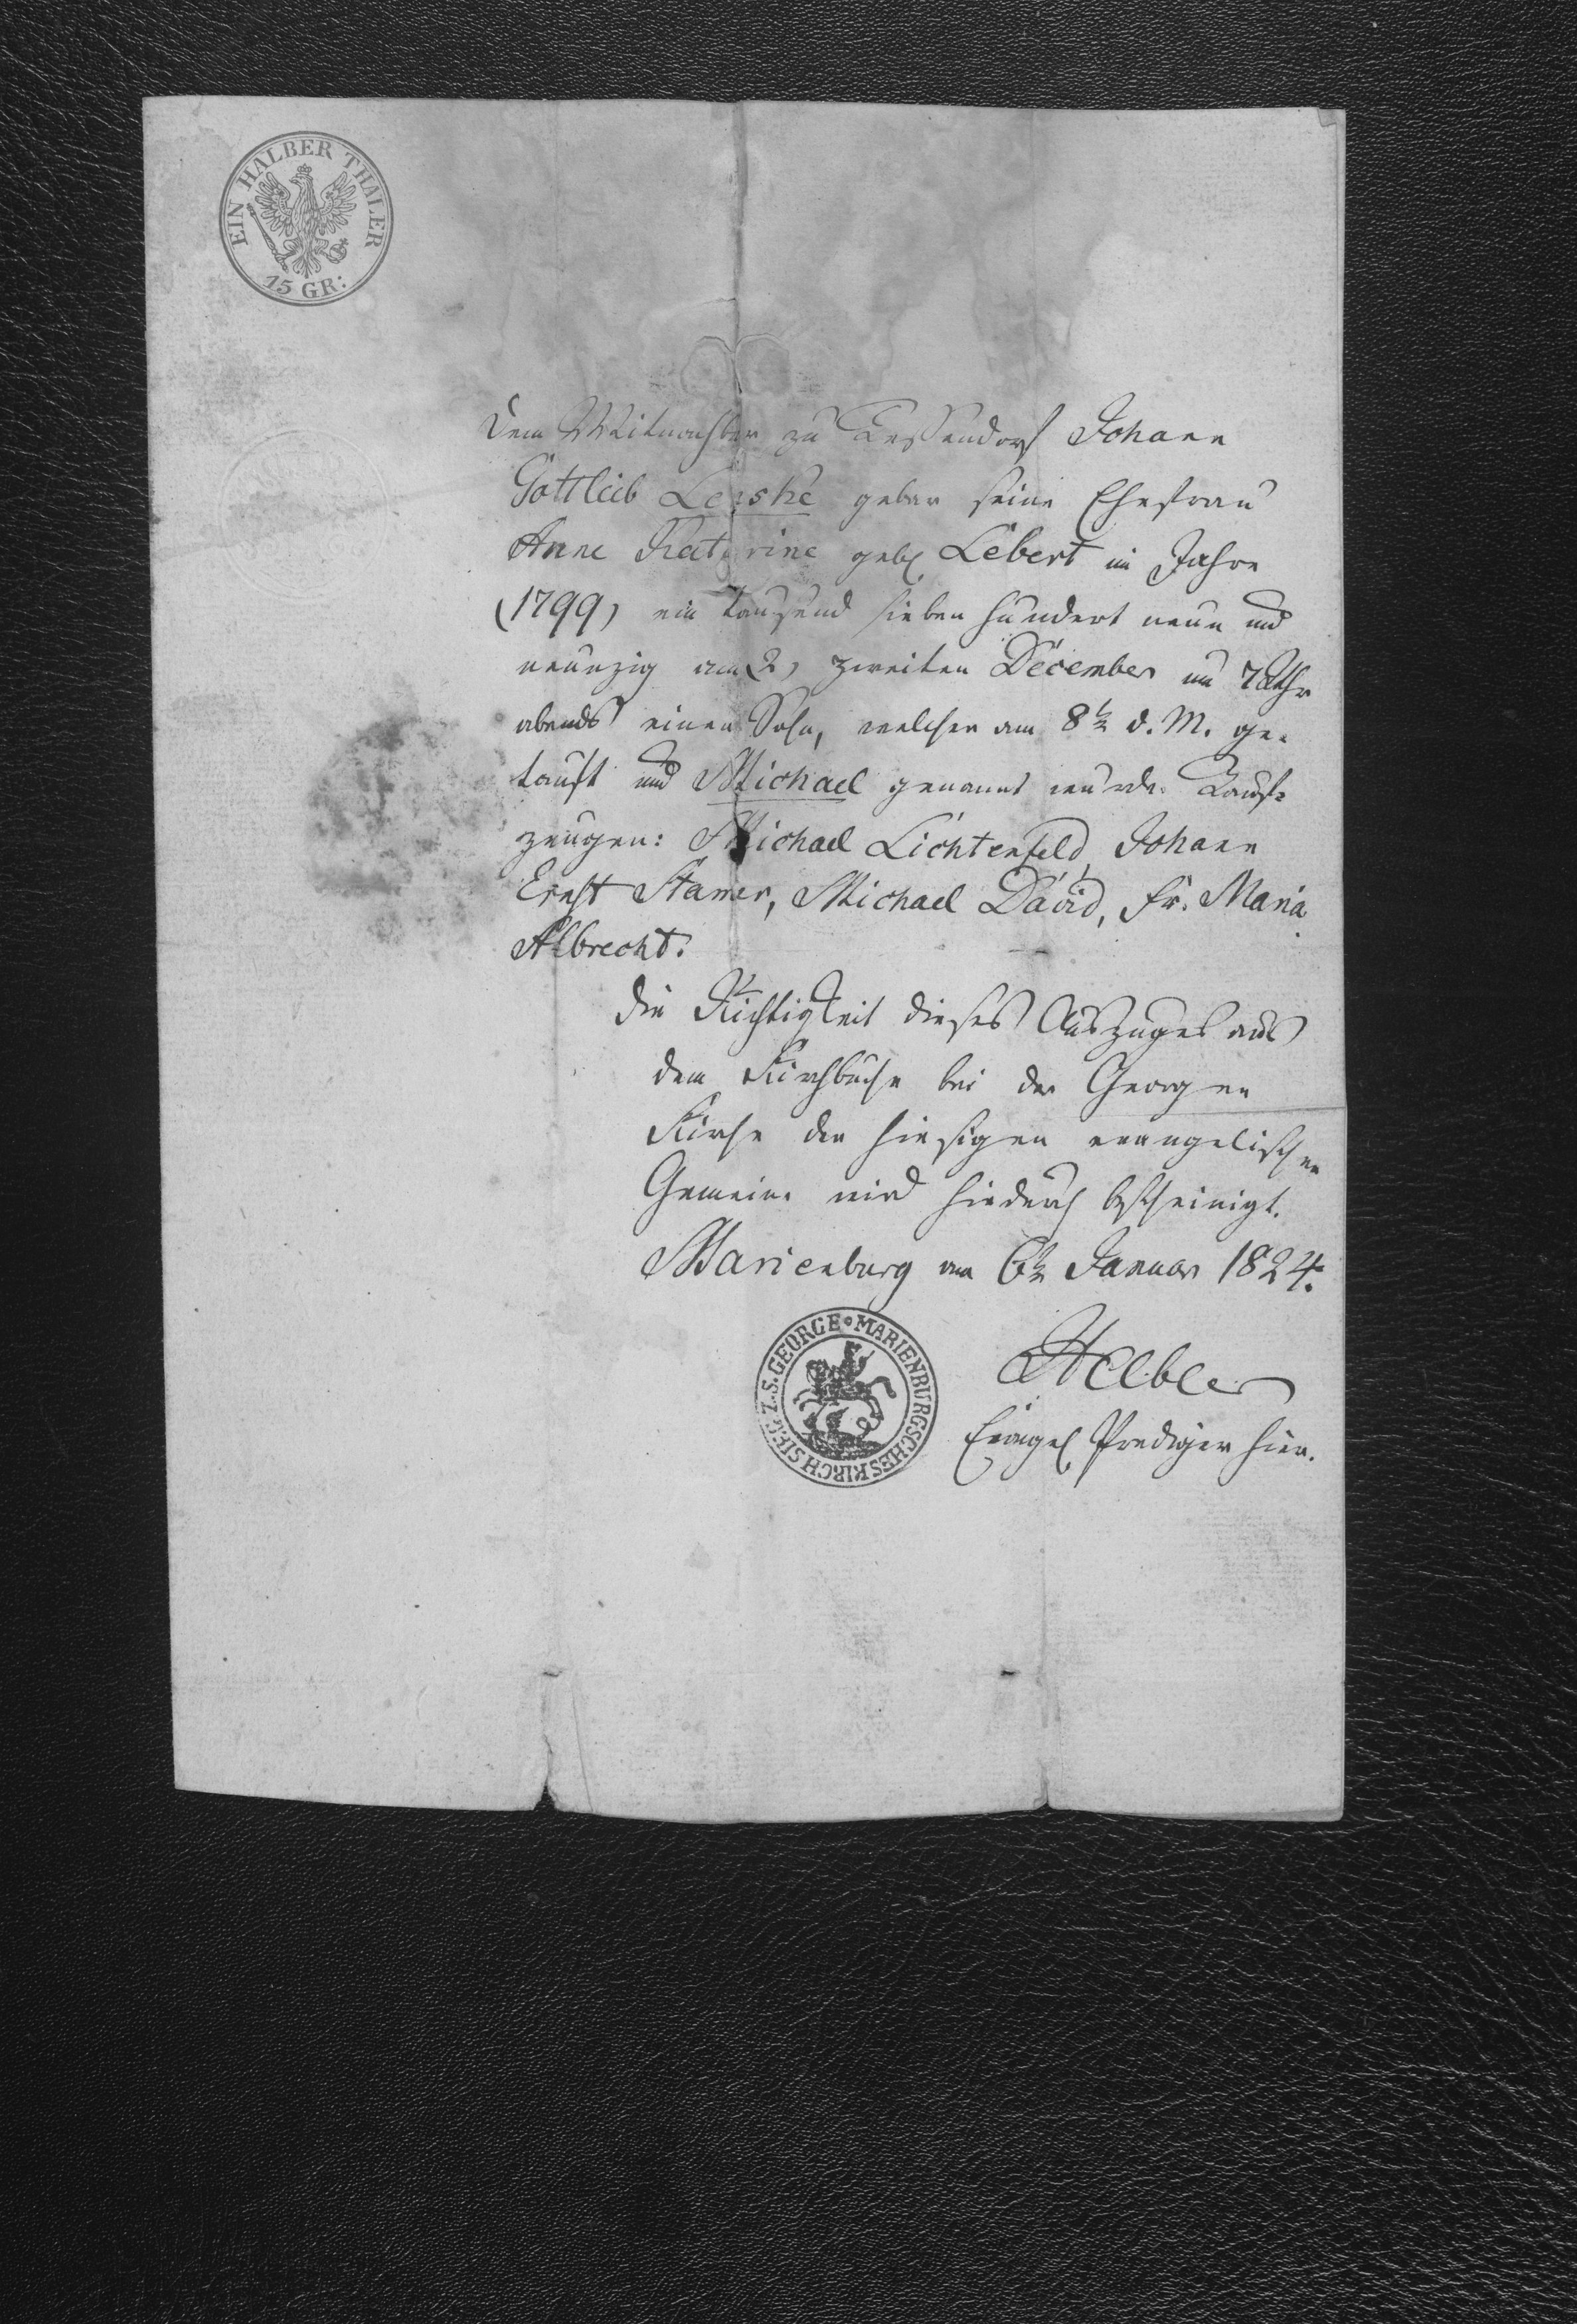 EIN HALBER THALER
15 GR:
Dem Mitnachbar zu Tessendorf Johann
Gottlieb Leiske gebar seine Ehefrau
Anne Katarine geb. Lebert im Jahre
(1799) ein tausend sieben hundert neun und
neunzig am 2) zweiten December um 7 Uhr
abends einen Sohn, welcher am 8t. d. M. ge-
tauft und Michael genannt wurde. Tauf-
zeugen: Michael Lichtenfeld, Johann
Ernst Stamer, Michael David, fr. Maria
Albrecht.
Die Richtigkeit dieses Auszuges aus
dem Kirchbuche bei der Georgen
Kirche der hiesigen evangelischen
Gemeine wird hiedurch bescheinigt.
Marienburg am 6t. Januar 1824.
MARIENBURGSCHES KIRCHSIEG: Z. S. GEORGE
Evangel Prediger hier.